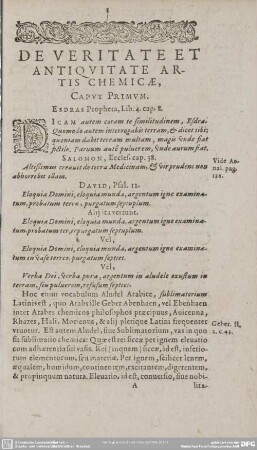 DE VERITATE ET
ANTIQVITATE AR-
TIS CHEMICÆ,
CAPVT PRIMVM.
ESDRAS Propheta, Lib. 4. cap. 8.
DICAM autem coram te similitudinem, Esdra.
Quomodo autem interrogabis terram, & dicet tibi;
quoniam dabit terram multam, magis vnde fiat
fictile. Paruum autē puluerem, vnde aurum fiat.
SALOMON, Ecclesi. cap. 38.
Altissimus creauit de terra Medicinam, & vir prudens non
abhorrebit illam.
Vide An-
nal. pag.
DAVID, Psal. 12.
Eloquia Domini, eloquia munda, argentum igne examina-
tum, probatum terræ, purgatum septuplum.
Alij ita vertunt.
Eloquia Domini, eloquia munda, argentum igne examina-
tum, probatum terræ, purgatum septuplum.
Vel,
Eloquia Domini, eloquia munda, argentum igne examina-
tum in vase terreo, purgatum septies.
Vel,
Verba Dei, verba pura, argentum in aludele exustum in
terram, seu puluerem, refusum septies.
Hoc enim vocabulum Aludel Arabice, sublimatorium
Latini est, quo Arabibus Geber Abenhaen, vel Ebenhaen
inter Arabes chemicos philosophos præcipuus, Auicenna,
Rhazes, Hali, Morienus, & alij plerique Latini frequenter
vtuntur. Est autem Aludel, siue Sublimatorium, vas in quo
fit sublimatio chemica: Quæ est rei siccæ per ignem eleuatio
cum adhærentia sui vasis. Rei (inquam) siccæ, id est, infectio-
rum elementorum, seu materiæ. Per ignem, scilicet lenem,
æqualem, humidum, continentem, excitantem, digerentem,
& propinquum natura. Eleuatio, id est, conuersio, siue nobi-
Geber. II,
A
lita-